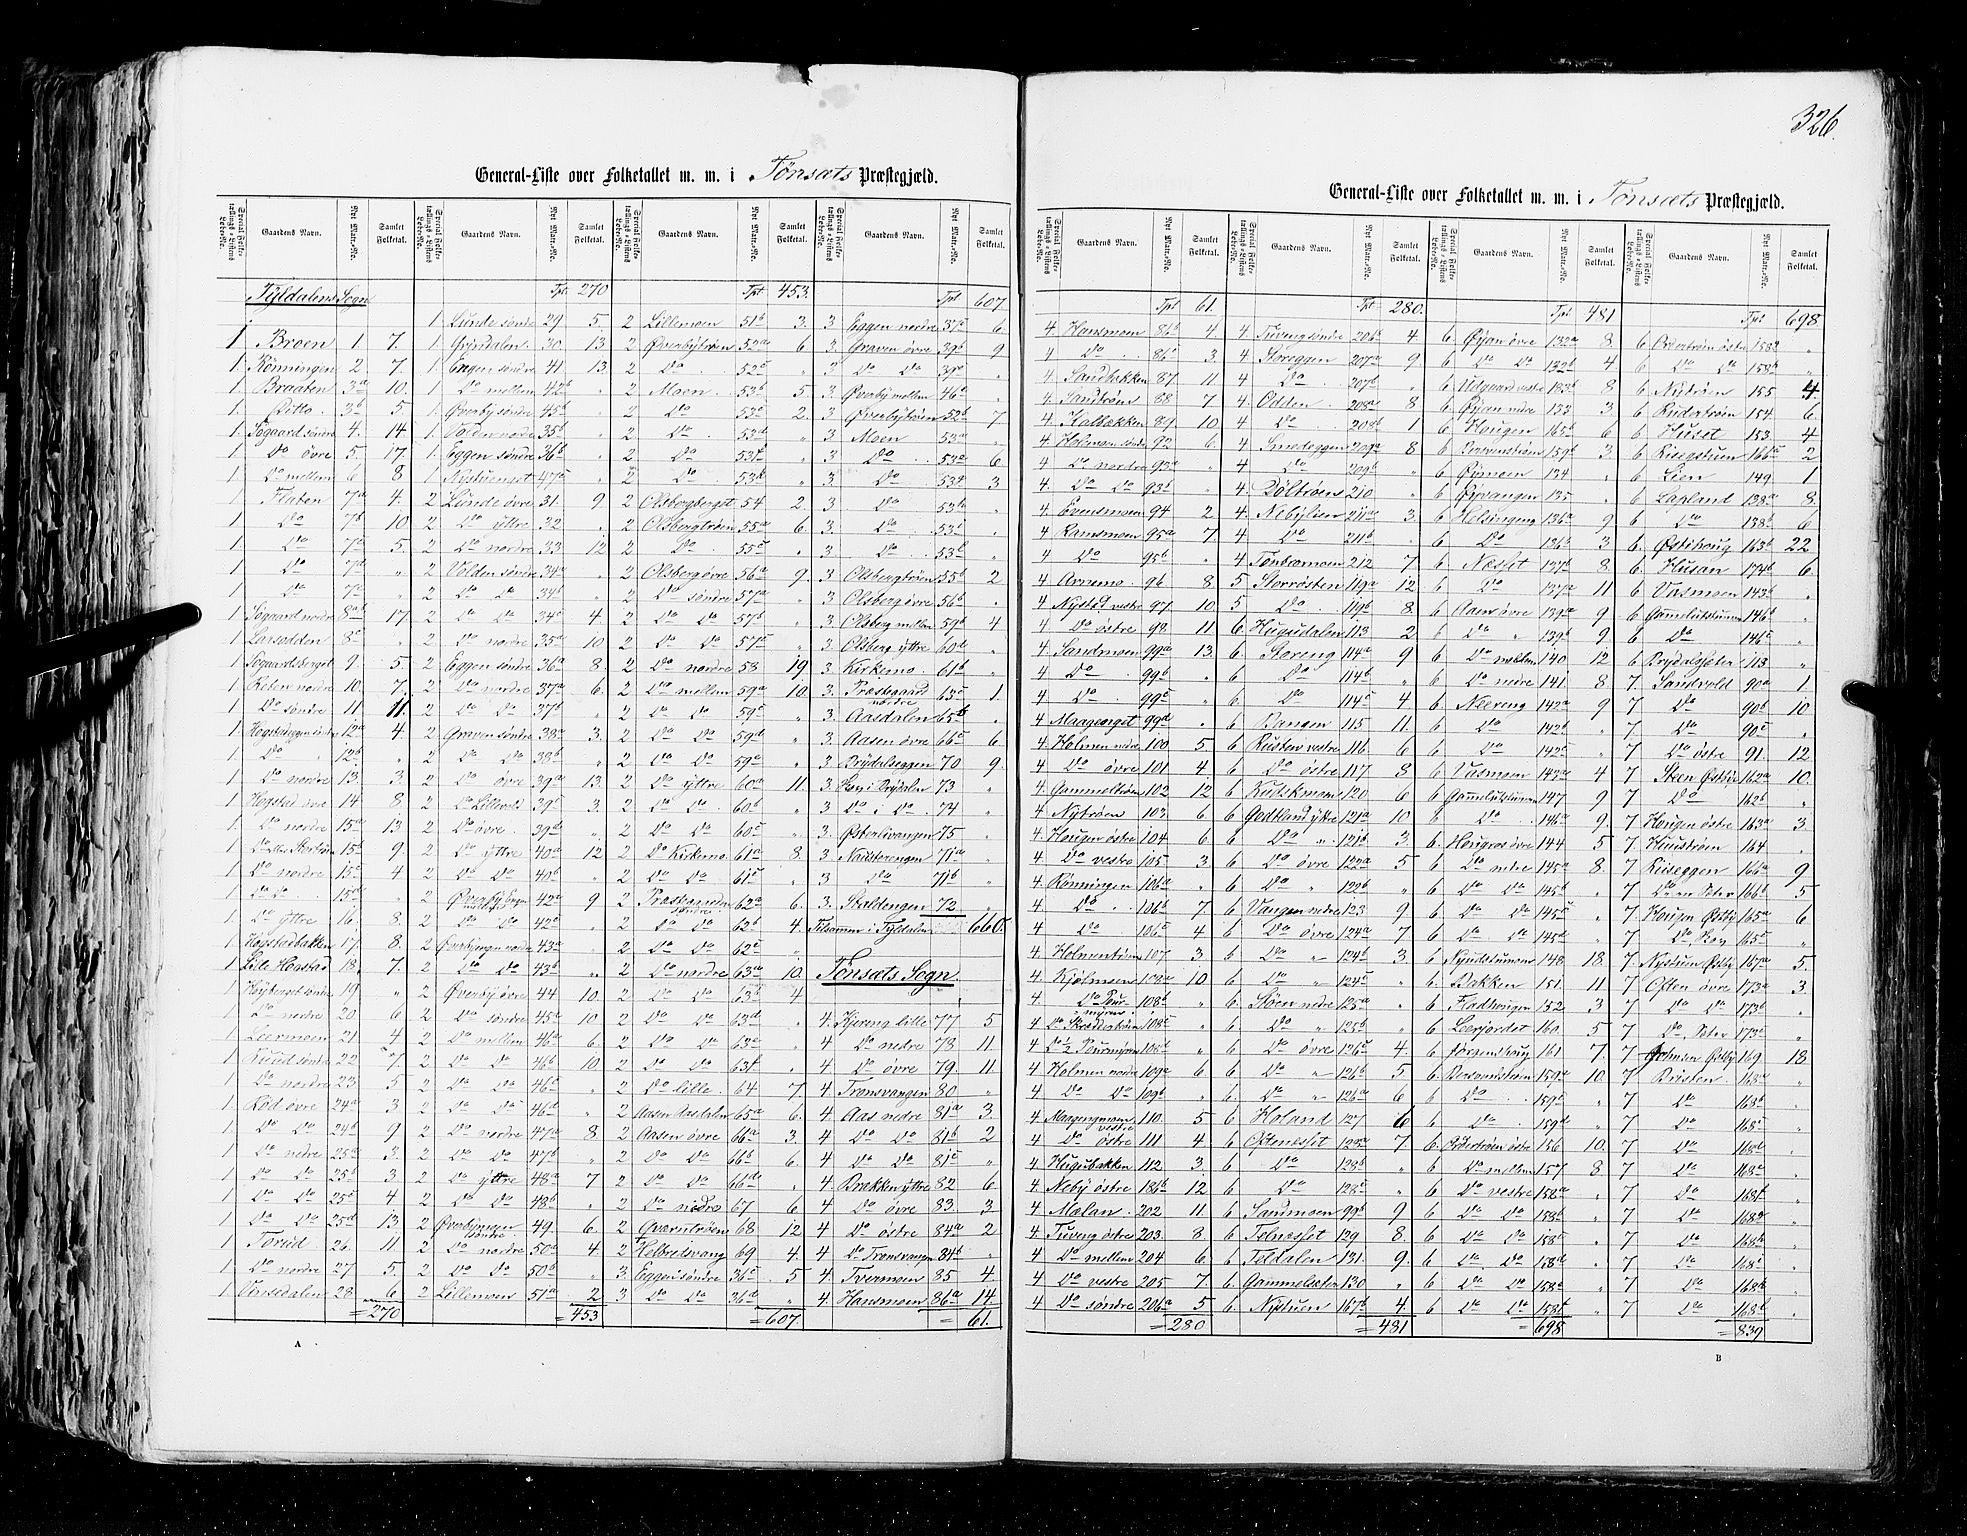 326.
General-Liste over Folketallet m. m. i Tønsæts Præstegjæld.
Special Folketællings-Listens Lobe-No. Gaardens Navn. Nyt Matr.-No. Samlet Folketal.
Tpt. 270 Tpt 453. Tpt 607
Tyldalens Sogn
1 Broen 1 7.
1. Rönningen 2. 7.
1. Braaten 3a 10.
1. Ditto 3b 5.
1. Sogaard søndre 4. 14.
1. Do øvre 5 17.
1. Do mellem 6 8
1. Flaten 7a 4.
1. Do 7b 10
1. Do 5.
1. Do "
1. Do
1 Sogaard nordre 17.
1 Larsodden "
1. Sogaardsberget 9. 5.
1. Reten nordre 10. 7.
1. Do søndre 11 11.
1. 12a 4
1. Do 12b "
1. Do nordre 13. 3
1. Hogstad øvre 14 8.
1. Do nordre 15a 13
1. 9.
1. Do nordre 4
1. Do Do
1. Do yttre 16. 8
1. Hogstadbakken 17. 8.
1. Lille Hogstad 18. 7.
1. 19 "
1. Do nordre 20 6
1. Leermoen 21 4
1. Ruud søndre 22 7.
1. Do nordre 23 5
1. Rød øvre 24a 3
1. Do Do 24b 9
1. Do nedre 25a 3.
1. Do Do 25b 3
1. Do Do 4
1. Do Do 25d 13
1. Torud 26. 11
1. Do nordre 27 5.
1 28. 6
= 270
1 Lunde søndre 29 5.
1. Grindalen 30. 13
1. søndre 41. 13
1. Do mellem 42b
1. Øverby søndre 45b
1. Volden nordre 35b
1. Eggen søndre 36b
1. 47c
2 Lunde øvre 31. 9
2 Do yttre 32
2 Do nordre 33 12
2 Volden søndre 34a
2 Do Do 34b
2 Do Do 34c 4
2 Do nordre 35a 10
2 Eggen søndre 36a 8.
2 Do nordre 37a 6.
2 Do Do 37b
2 Graven søndre 38a 3.
2 Do Do 38b
2 Do øvre 39a 13.
2 Do Lillevold 39c 3.
2 Do øvre 39d
2 Do yttre 40a 12
2 Do Do 40b
2 42a 9
2 Do Do
2 nordre 43a
2 Do Do 43b
2 Øverby øvre 44 10.
2 Do søndre 45a 10
2 Do mellem 46a 6.
2 Do Do 46b 10
2 Do Do
2 Do Do 46d
2 Do nordre 47a 8.
2 Do Do 47b
2 Do yttre 48a 7
2 Do Do 48b
2 Øverbyengen søndre 49 6.
2 Do nordre 50a 4
2 Do Do 50b
2 Lillemoen 51a 2
= 453
2 Lillemoen 51b 3.
2 Øverbytrøen 52a 6
2 Do 52c
2 Moen 53b 5
2 Do 53c 2.
2 Do 53d
2 Do
2 Do
2 Olsberget 54 2
2 Olsbergtrøen 55a 6.
2 Do
2 Olsberg øvre 56a 9.
2 Do søndre 57a
2 Do Do 57b
2 Do Do
2 Do nordre 58 19
2 Do mellem 59a 10.
2 Do Do
2 Do Do 59d
2 Do Do
2 Do yttre 60a 11.
2 Do Do 60b
2 Do Do
2 Do Kirkemo 61a 8.
2 Do Do
2 søndre 62a 6.
2 Do Do 62b 4.
2 Do Do
2 Do nordre 63a 10.
2 Do Do 63b 4
2 Do Do 63d
2 Do Do
2 Do Do
2 Do lille 64 7.
2 Aasen Aasdalen 65a 6.
2 Aasen øvre 66a 3.
2 Do Do 66b 6.
2 Do Do 66d
2 Do nedre 67 6
2 Qverntrøen 68 12
2 Helbredvang 69 4.
3. Eggen søndre 5
3 Do Do 36d
= 607
3 Eggen nordre 6
3. Graven øvre 39b 9
3 Do Do
3. Øverby mellem
3. Øverbytrøen 52b 7
3. Moen 53a
3 Do 6
3 Do 3
3 Do
3. Do
3 Do
3. Olsbergtrøen 55b 2
3. Olsberg øvre 56b
3. Olsberg mellem 59b 4
3. Olsberg yttre 60d
3. Kirkemo. 61b
3. Præstegaard nordre 1
3. Aasdalen 65b
3. Aasen øvre 6.
3 Brydalseggen 70 9.
3. i Brydalen 73
3 Do i Do 74
3. Østerlivangen 75
3 71a
3 Do 71b
3. Staldengen 72
Tilsammen i Tyldalen 660.
Tønsæts Sogn
4. Kjereng lille 77 5
4 Do nedre 78 11
4 Do øvre 79. 11
4 Tronsvangen 80
4 Aas nedre 81a 3.
4 Do Do 81b 2
4 Do Do
4. Brækken yttre 82 6.
4 Do øvre 83. 3
4 Do østre 84a 2
4 Do Tronsvangen 84b
4. Tvermoen 85 4.
4. Hansmoen 86a 14.
= 61.
A
General-Liste over Folketallet m. m. i Tønsæts Præstegjæld.
Special Folketællings-Listens Lobe-No. Gaardens Navn. Nyt Matr.-No. Samlet Folketal.
Tpt 61. Tpt. 280. Tpt 481 Tpt 698
4. Hansmoen 86b 4.
4 Do 3.
4. Sandbakken 87. 11
4 Sandtrøen 88 7
4. Kalbækken 89 10
4 Holmoen søndre 92 6.
4 Do nordre 93a
4. Do Do 93b
4 Evensmoen 94 2
4 Ramsmoen 95a 7
4 Do 95b
4 Arnemo. 96 8
4 Nystad vestre 97 10
4 Do østre 98 11
4. Sandmoen 99a 13.
4 Do 99b
4 Do
4 99d
4 Holmen nedre 100 5
4. Do øvre 101 4
4. Gammeltrøen 102 12
4 Nytrøen 103 6
4 Haugen østre 104 6.
4 Do vestre 105 3
4 Rønningen 106a
4. Do 106b 7.
4 Do 4
4. Holmentrøen 107 3
4. Kjølmoen 108a 10
4 Do 108b
4 Do
4 Do 108d
4. Holmen nordre 109a 6.
4 Do Do 109b
4 110. 5
4 Do østre 111 4
4. Hugubakken 112 3.
4 Neby østre 186b 12
4. Malan. 202 11
4 Tuveng østre 203. 8.
4 Do mellem 204 6.
4 Do vestre 205 7.
4 Do søndre 206a 5
= 280
4 Tuveng søndre 206b 4
4. Storeggen 207a 9
4 Do 207b
4. Odden 208a 8
4 Do 208b 1
4 Smedeggen 209a 8
4 Do 209b
4. 210
4. Nebylien 211a 3.
4 Do 211b
4 212 7
5 Storrøsten 119a 12
5. Do 119b 8.
6. Hugudalen 113 2
6. Storeng 114a 9
6 Do 114b
6 Do 4
6 Bangen 115 11.
6 Rusten vestre 116 6
6 Do østre 117 8
6 Kudskmoen 120 6
6 Godtland ytre 121a 10
6 Do 121b 3.
6 Do øvre 122a 5
6 Do 122b
6. Vangen nedre 123 9
6 Do øvre 124a 7
6 Do 124b 3.
6 Do
6 Støen nedre 125a
6. Do 125b
6 Do øvre 4.
6. Do 126b 5
6 Do 126a 6
6 Holand 127 6
6 128a 7
6 Do 128b
6 Do
6 Sandmoen 99b 9
6 Telnesset 129 8.
6 Teldalen 131. 9.
6. Gammelsæter 130
6. Nystuen 167b 4.
= 481
6 Øian øvre 132a 8.
6 Do Do 132b 4
6 Udgaard vestre 8
6 Øian nedre 133 3
6 Haugen 165b 6
6 159b 3
6 Øimoen 134
6 Øivangen 135
6 Helsingeng 136a 9
6 Do 136b 3
6 Næsset 137b 8
6 Do 137a 11
6 Aaen øvre 139a 9
6 Do 139b 9
6 Do mellem 140 12
6 Do nedre 141. 8
6 142a 9
6 Do 142b
6 Do
6 Vasmoen 143a 4
6 147 9
6 Do 146a 9
6. øvre 144 5
6 Do nedre 145a 8.
6. Do Do 145b
6 Do Do
6. Do Do 145d
6 148 18.
6. Bakken 151. 11
6. 152 3
6. Leerjordet 160. 5
6. Jørgenshaug 161 7.
6. 159a 10.
6 Do
6 Do 159d
6. østre 156 10.
6 Do mellem 157 8
6 Do vestre 158a
6 Do Do 158b
6. Do Do
6 Do Do
6 Do Do
6 Do Do
= 698
6 østre
6 Do Do 158b
6 Nytrøen 155 4
6 154 6
6 Huset 153 4
6 2
6 Lien 149 1
6 Lapland 138a 8.
6 Do 138b 6
6. Østihaug 163b 22
6. Husan 174b 6.
6 Vasmoen 143b
6 146b
6 Do
6 113
7. Sandvold 90a 1.
7 Do 90b 10
7 Do
7 Do østre 91. 12
7 Steen Østby 162a 10.
7 Do 162b
7 Haugen østre 163a 3.
7 164
7 Riiseggen 166a 9
7 Do 166b 5
7. Haugen Østby 165a 6
7 Do
7. Nystuen Østby 167a 5.
7 Often øvre 173a 3.
7 Do Do 173b
7 Do
7 Østby 169 18
7 168a
7 Do 168b
7 Do
7 Do
7 Do
7 Do
7 Do
7 Do
7 Do
7 Do
7 Do
= 839
B